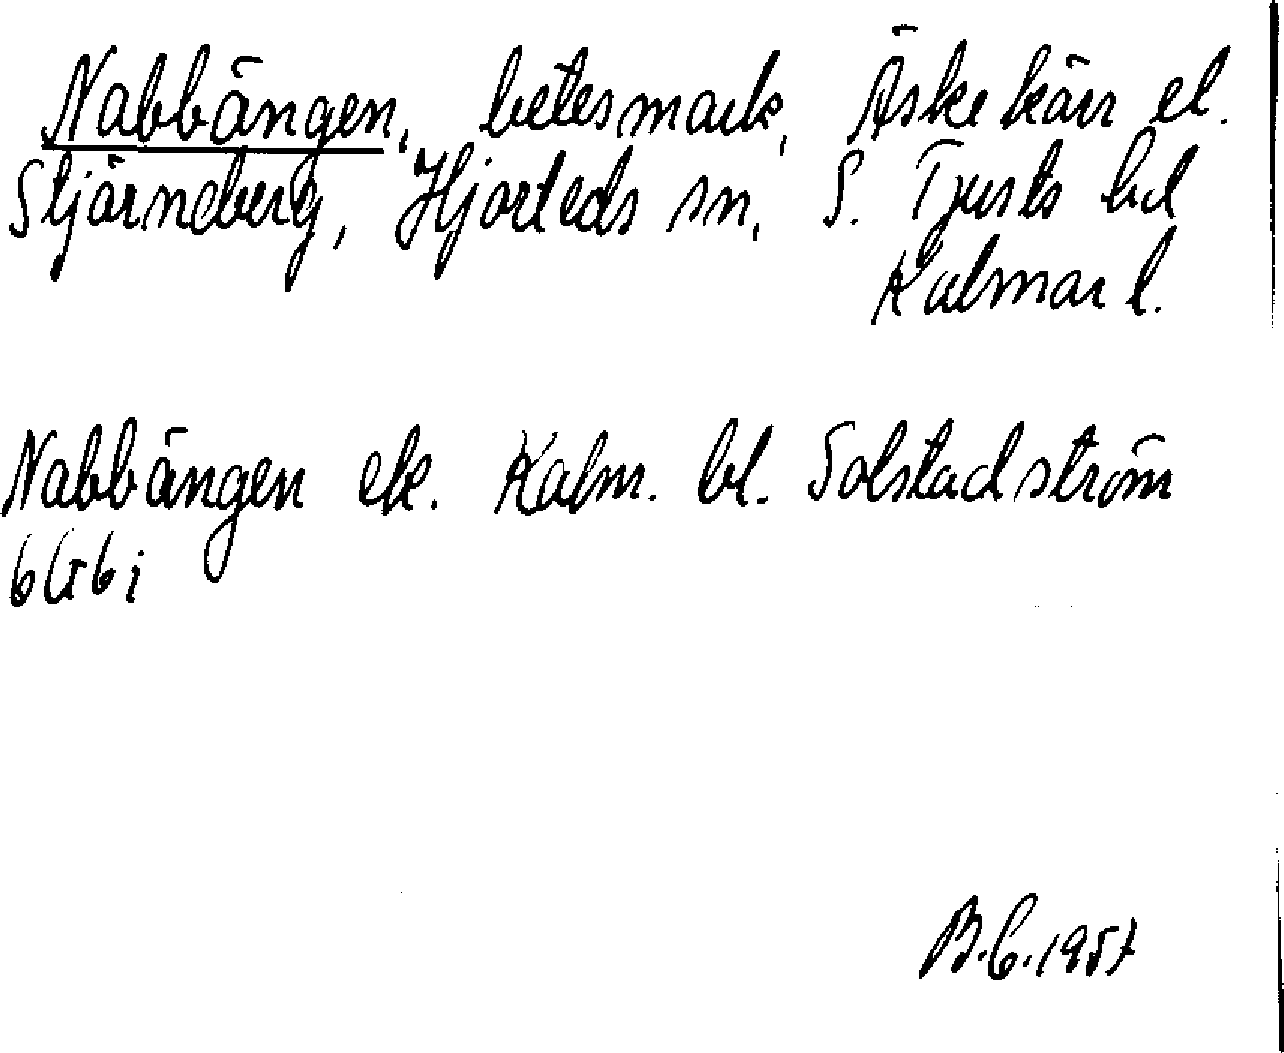 Nabbängen, betesmark, Äskekärr el.
Stjärneberg, Hjorteds sn, S. Tjusts hd
Kalmar l.
Nabbängen ek. Kalm. bl. Solstadström
6G6i
B.C. 1957